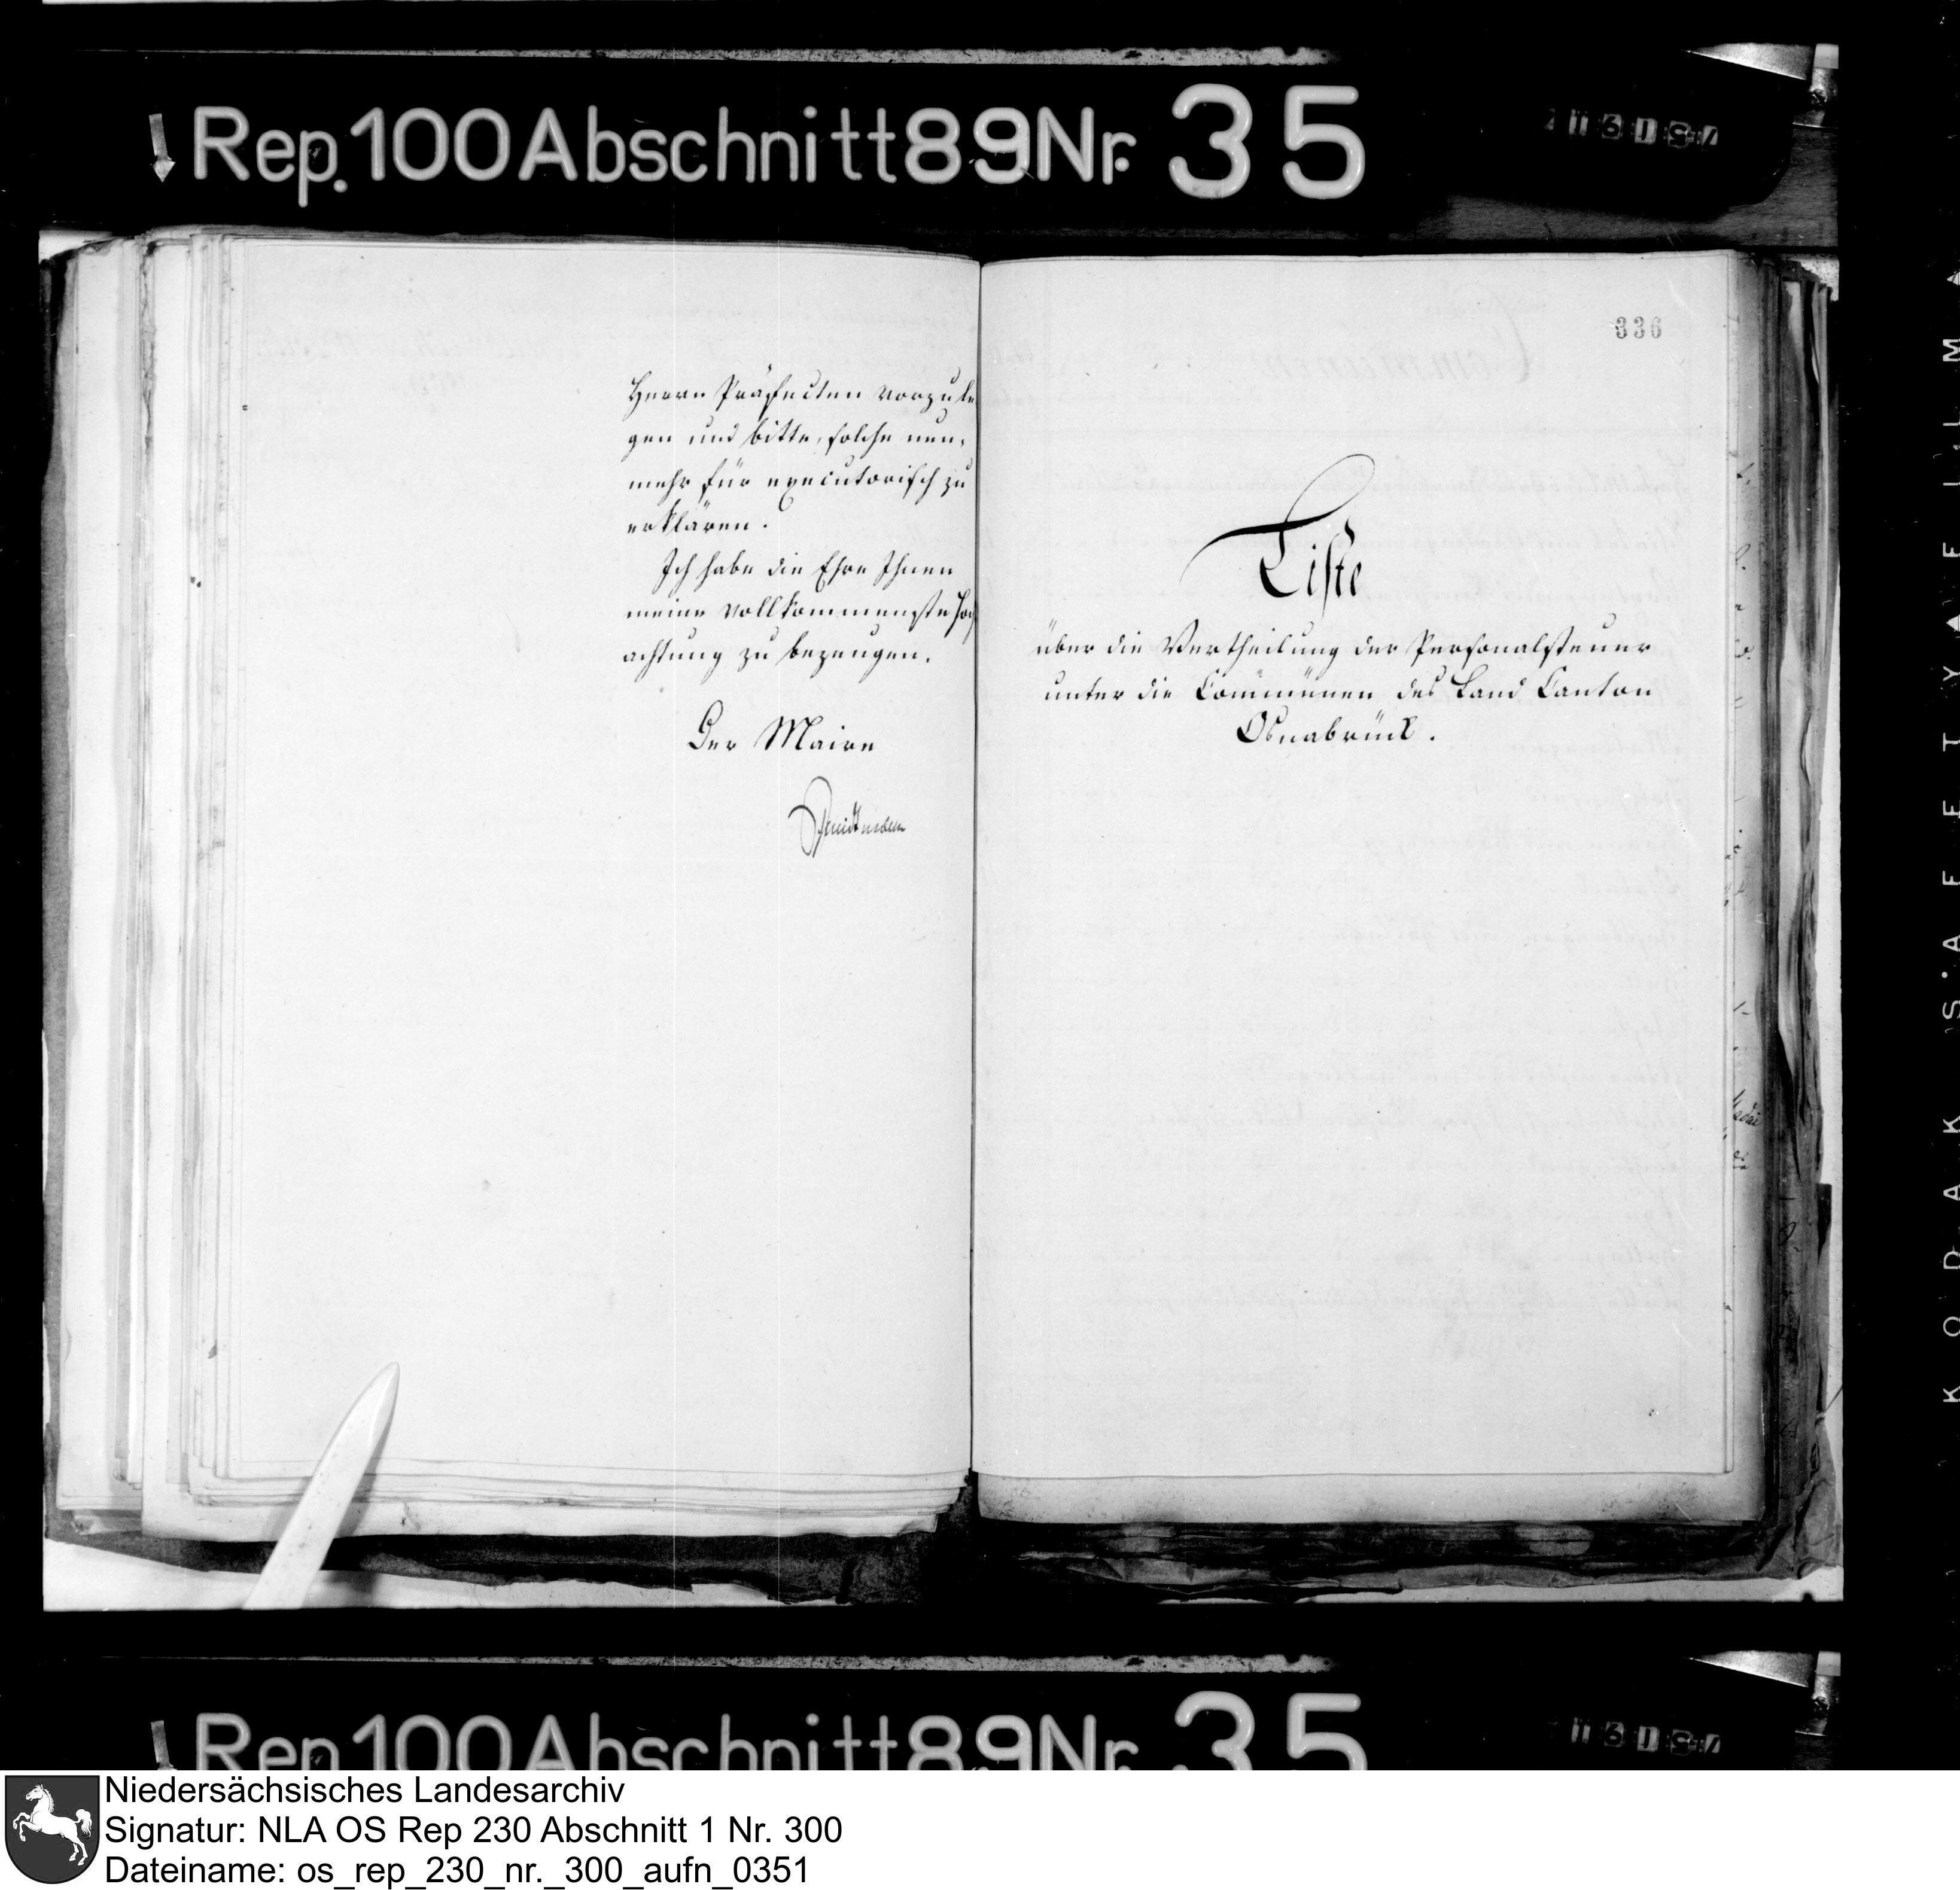 Rep. 100 Abschnitt 89 Nr. 35
Herrn Präfecten vorzule
gen und bitte, solche nun,
mehr für executorisch zu
erklären.
Ich habe die Ehre Ihnen
meine vollkommenste Hoch
achtung zu bezeugen.
Der Maire
336
Liste
über die Vertheilung der Personalsteuer
unter die Communen des Land Canton
Osnabrück.
KODAK SAFETY FILM
Rep. 100 Abschnitt 89 Nr. 35
Niedersächsisches Landesarchiv
Signatur: NLA OS Rep 230 Abschnitt 1 Nr. 300
Dateiname: os_rep_230_nr._300_aufn_0351